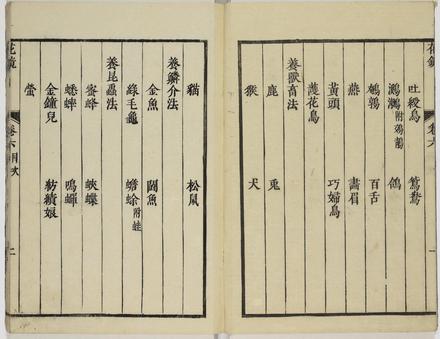 花鏡 卷六 一
吐綬鳥 鴛鴦
鸂鷘附鵁鶄 鴿
鵪鶉 百舌
燕 畫眉
黃頭 巧婦鳥
護花鳥
養獸畜法
鹿 兔
猴 犬
貓 松鼠
養鱗介法
金魚 鬭魚
綠毛龜 蟾蜍附蛙
養昆蟲法
蜜蜂 蛺蝶
蟋蟀 鳴蟬
金鐘兒 紡績娘
螢
花鏡 卷六目次 二